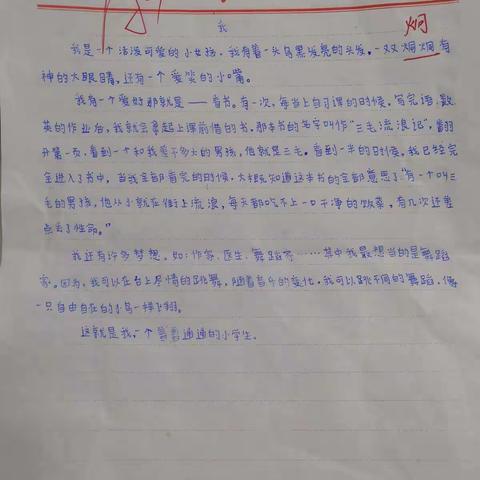 我
炯
我是一个活泼可爱的小女孩，我有着一头乌黑发亮的头发，一双炯炯有
神的大眼睛，还有一个爱笑的小嘴。
我有一个爱好那就是——看书。有一次，每当上自习课的时候，写完语、数、
英的作业后，我就会拿起上课前借的书。那本书的名字叫作“三毛流浪记”，翻
开第一页，看到一个和我差不多大的男孩，他就是三毛。看到一半的时候，我已经完
全进入了书中，当我全部看完的时候，大概知道这本书的全部意思了“有一个叫三
毛的男孩，他从小就在街上流浪，每天都吃不上一口干净的饭菜，有几次还差
点丢了性命。”
我还有许多梦想，如：作家、医生、舞蹈家……其中我最想当的是舞蹈
家。因为，我可以在台上尽情的跳舞，随着音乐的变化，我可以跳不同的舞蹈，像
一只自由自在的小鸟一样飞翔。
这就是我，一个普普通通的小学生。